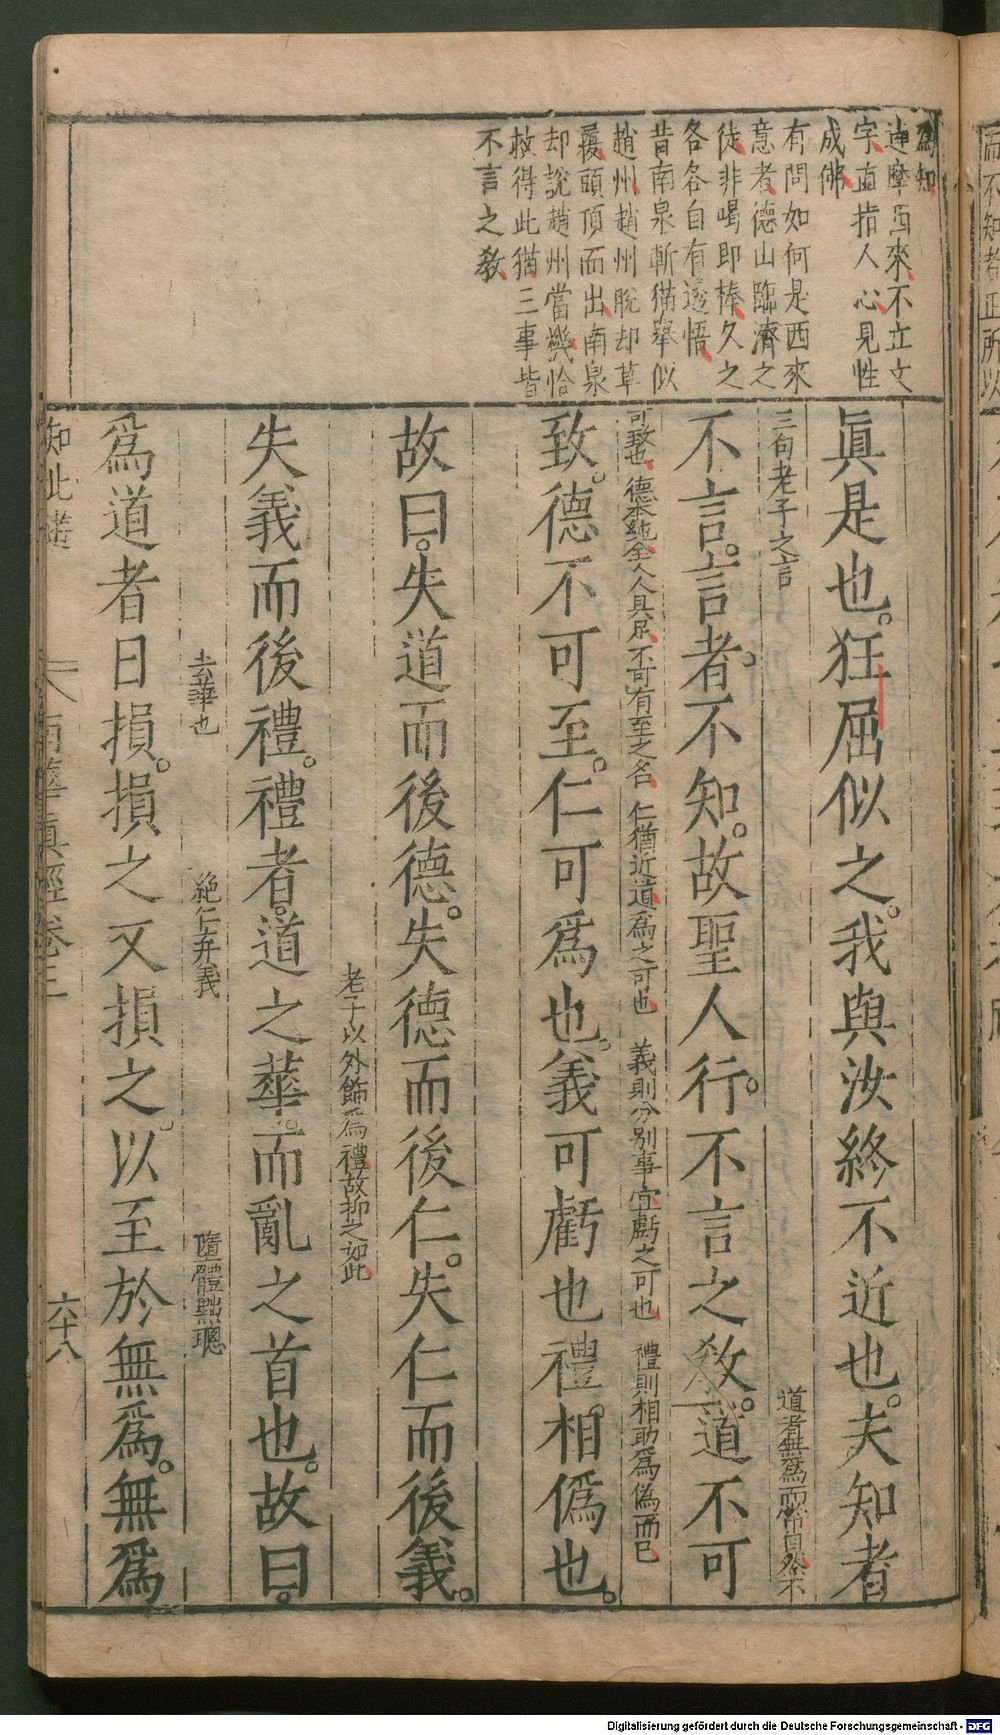 為知
達摩西來不立文
字直指人心見性
成佛
有問如何是西來
意者德山臨濟之
徒非喝即棒久之
各各自有透悟
昔南泉斬猫舉似
趙州趙州脫却草
覆頭頂而出南泉
却說趙州當機恰
救得此猫三事皆
不言之教
眞是也。狂屈似之。我與汝終不近也。夫知者
三句老子之言
道者無為而常自然不
不言。言者不知。故聖人行。不言之教。道不可
可致也
德本純全人人具足不可有至之名
仁猶近道為之可也
義則分別事宜虧之可也
禮則相助為偽而已
致。德不可至。仁可爲也。義可虧也禮。相僞也。
故曰。失道而後德。失德而後仁。失仁而後義。
老子以外飾為禮故抑之如此
失義而後禮。禮者。道之華。而亂之首也。故曰。
去華也
絕仁弃義
墮體黜聰
爲道者日損。損之又損之。以至於無爲。無爲
南華眞經卷三
六十八
Digitalisierung gefördert durch die Deutsche Forschungsgemeinschaft - DFG